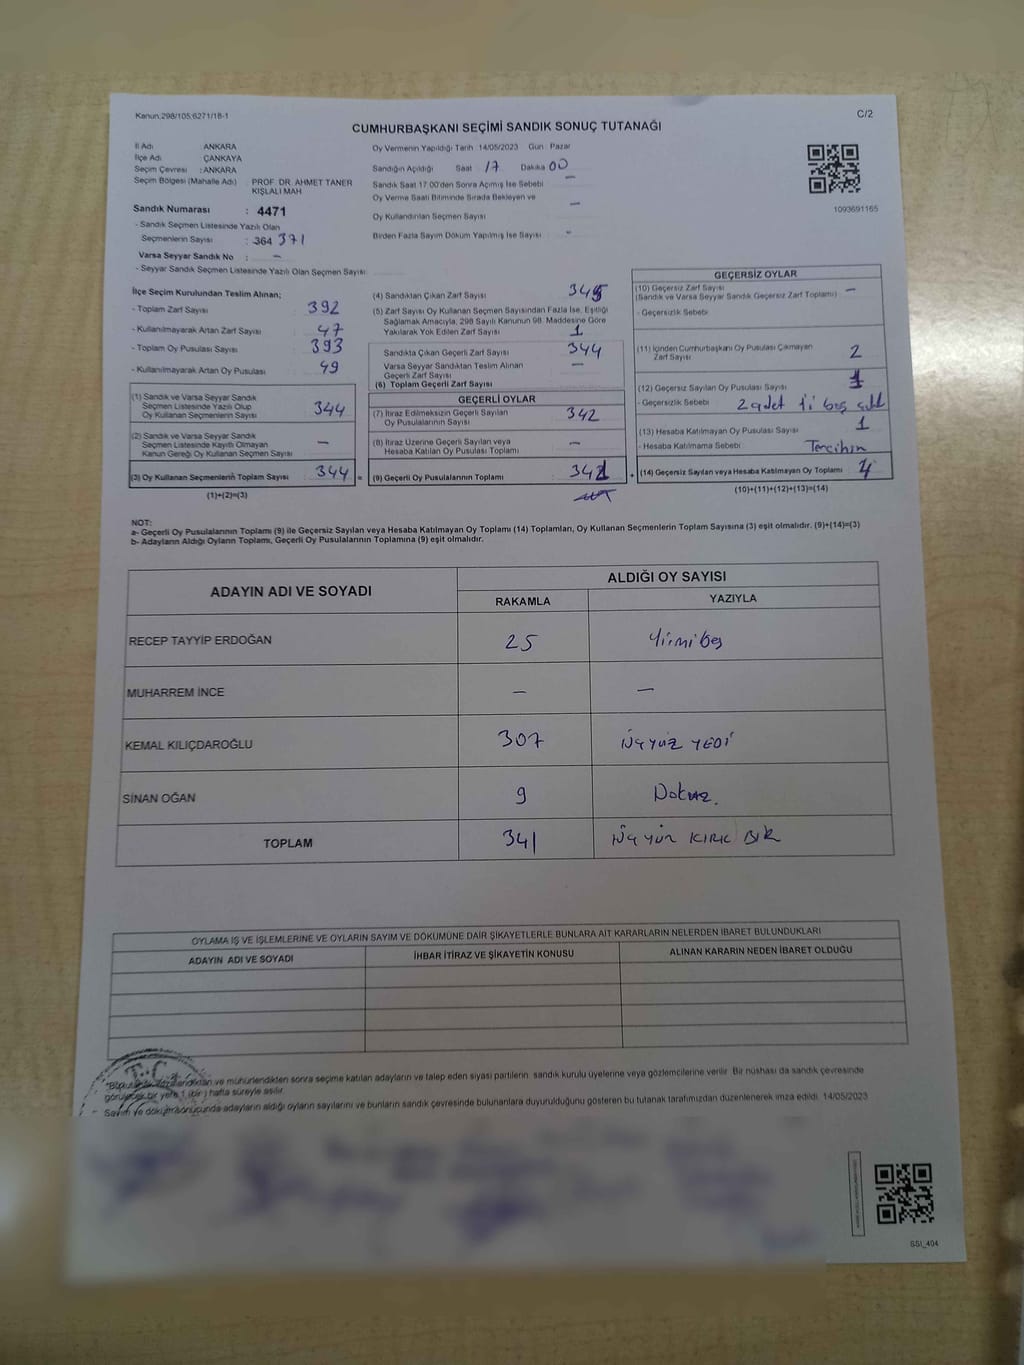 Kanun:298/105;6271/18-1
C/2
CUMHURBAŞKANI SEÇİMİ SANDIK SONUÇ TUTANAĞI
İl Adı ANKARA
İlçe Adı ÇANKAYA
Seçim Çevresi : ANKARA
Seçim Bölgesi (Mahalle Adı) : PROF. DR. AHMET TANER KIŞLALI MAH
Sandık Numarası : 4471
- Sandık Seçmen Listesinde Yazılı Olan
Seçmenlerin Sayısı : 364 371
Varsa Seyyar Sandık No : -
- Seyyar Sandık Seçmen Listesinde Yazılı Olan Seçmen Sayısı
Oy Vermenin Yapıldığı Tarih 14/05/2023 Gün : Pazar
Sandığın Açıldığı Saat 17 Dakika 00
Sandık Saat 17:00'den Sonra Açılmış İse Sebebi —
Oy Verme Saati Bitiminde Sırada Bekleyen ve
Oy Kullandırılan Seçmen Sayısı —
Birden Fazla Sayım Döküm Yapılmış İse Sayısı -
1093691165
İlçe Seçim Kurulundan Teslim Alınan;
- Toplam Zarf Sayısı : 392
- Kullanılmayarak Artan Zarf Sayısı : 47
- Toplam Oy Pusulası Sayısı : 393
- Kullanılmayarak Artan Oy Pusulası : 49
(1) Sandık ve Varsa Seyyar Sandık
Seçmen Listesinde Yazılı Olup
Oy Kullanan Seçmenlerin Sayısı : 344
(2) Sandık ve Varsa Seyyar Sandık
Seçmen Listesinde Kayıtlı Olmayan
Kanun Gereği Oy Kullanan Seçmen Sayısı : —
(3) Oy Kullanan Seçmenlerin Toplam Sayısı : 344
(1)+(2)=(3)
(4) Sandıktan Çıkan Zarf Sayısı : 345
(5) Zarf Sayısı Oy Kullanan Seçmen Sayısından Fazla İse, Eşitliği
Sağlamak Amacıyla, 298 Sayılı Kanunun 98. Maddesine Göre
Yakılarak Yok Edilen Zarf Sayısı : 1
Sandıkta Çıkan Geçerli Zarf Sayısı : 344
Varsa Seyyar Sandıktan Teslim Alınan
Geçerli Zarf Sayısı : —
(6) Toplam Geçerli Zarf Sayısı
GEÇERLİ OYLAR
(7) İtiraz Edilmeksizin Geçerli Sayılan
Oy Pusulalarının Sayısı : 342
(8) İtiraz Üzerine Geçerli Sayılan veya
Hesaba Katılan Oy Pusulası Toplamı : —
= (9) Geçerli Oy Pusulalarının Toplamı : 341 +
GEÇERSİZ OYLAR
(10) Geçersiz Zarf Sayısı : —
(Sandık ve Varsa Seyyar Sandık Geçersiz Zarf Toplamı)
- Geçersizlik Sebebi :
(11) İçinden Cumhurbaşkanı Oy Pusulası Çıkmayan
Zarf Sayısı : 2
(12) Geçersiz Sayılan Oy Pusulası Sayısı : 1
- Geçersizlik Sebebi : 2 adet 1'i boş
(13) Hesaba Katılmayan Oy Pusulası Sayısı : 1
- Hesaba Katılmama Sebebi : Tercihin
(14) Geçersiz Sayılan veya Hesaba Katılmayan Oy Toplamı : 4
(10)+(11)+(12)+(13)=(14)
NOT:
a- Geçerli Oy Pusulalarının Toplamı (9) ile Geçersiz Sayılan veya Hesaba Katılmayan Oy Toplamı (14) Toplamları, Oy Kullanan Seçmenlerin Toplam Sayısına (3) eşit olmalıdır. (9)+(14)=(3)
b- Adayların Aldığı Oyların Toplamı, Geçerli Oy Pusulalarının Toplamına (9) eşit olmalıdır.
ADAYIN ADI VE SOYADI
ALDIĞI OY SAYISI
RAKAMLA YAZIYLA
RECEP TAYYİP ERDOĞAN 25 Yirmi beş
MUHARREM İNCE — —
KEMAL KILIÇDAROĞLU 307 üçyüz YEDİ
SİNAN OĞAN 9 Dokuz.
TOPLAM 341 üçyüz KIRK BİR
OYLAMA İŞ VE İŞLEMLERİNE VE OYLARIN SAYIM VE DÖKÜMÜNE DAİR ŞİKAYETLERLE BUNLARA AİT KARARLARIN NELERDEN İBARET BULUNDUKLARI
ADAYIN ADI VE SOYADI İHBAR İTİRAZ VE ŞİKAYETİN KONUSU ALINAN KARARIN NEDEN İBARET OLDUĞU
T.C.
ve mühürlendikten sonra seçime katılan adayların ve talep eden siyasi partilerin sandık kurulu üyelerine veya gözlemcilerine verilir. Bir nüshası da sandık çevresinde
görülecek bir yere 1 (bir) hafta süreyle asılır.
Sayım ve döküm sonucunda adayların aldığı oyların sayılarını ve bunların sandık çevresinde bulunanlara duyurulduğunu gösteren bu tutanak tarafımızdan düzenlenerek imza edildi. 14/05/2023
SSI_404